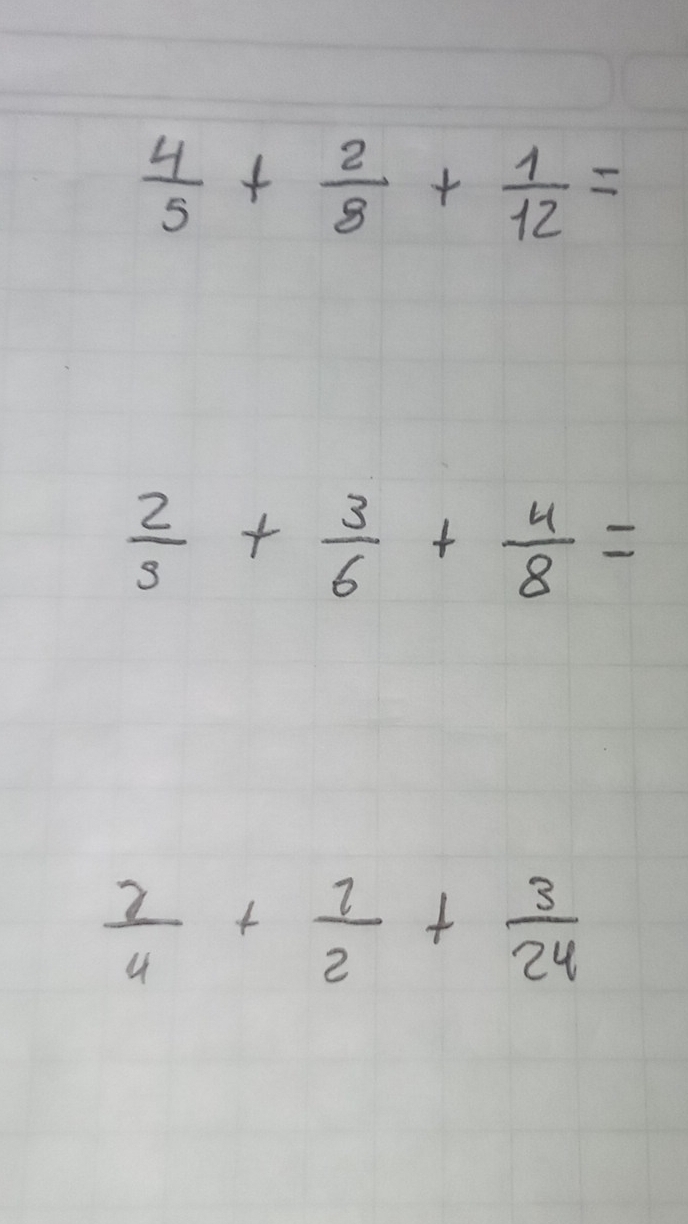 4/5 + 2/8 + 1/12 =
2/5 + 3/6 + 4/8 =
7/4 + 1/2 + 3/24